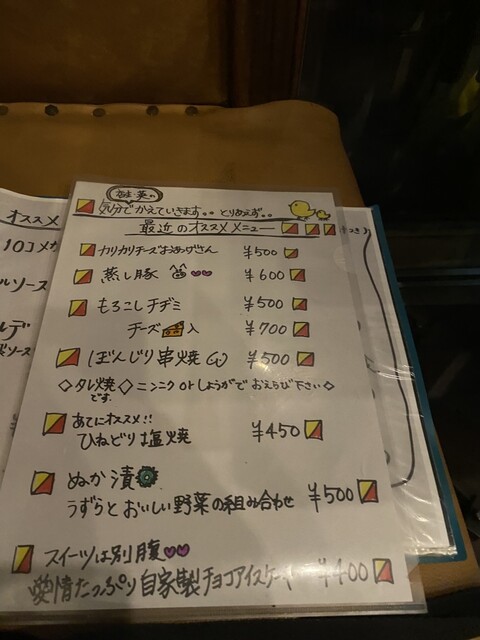 気分でかえていきます。。とりあえず。。
最近のオススメメニュー
カリカリチーズおあげさん ¥500
蒸し豚 ¥600
もろこしチヂミ ¥500
チーズ入 ¥700
ぼんじり串焼 ¥500
◇タレ焼です。◇ニンニク or しょうがで おえらび下さい◇
あてにオススメ!!
ひねどり塩焼 ¥450
ぬか漬
うずらとおいしい野菜の組み合わせ ¥500
スイーツは別腹
愛情たっぷり自家製チョコアイスケーキ ¥400
オススメ
10コ
ルソース
ルデ
ソース